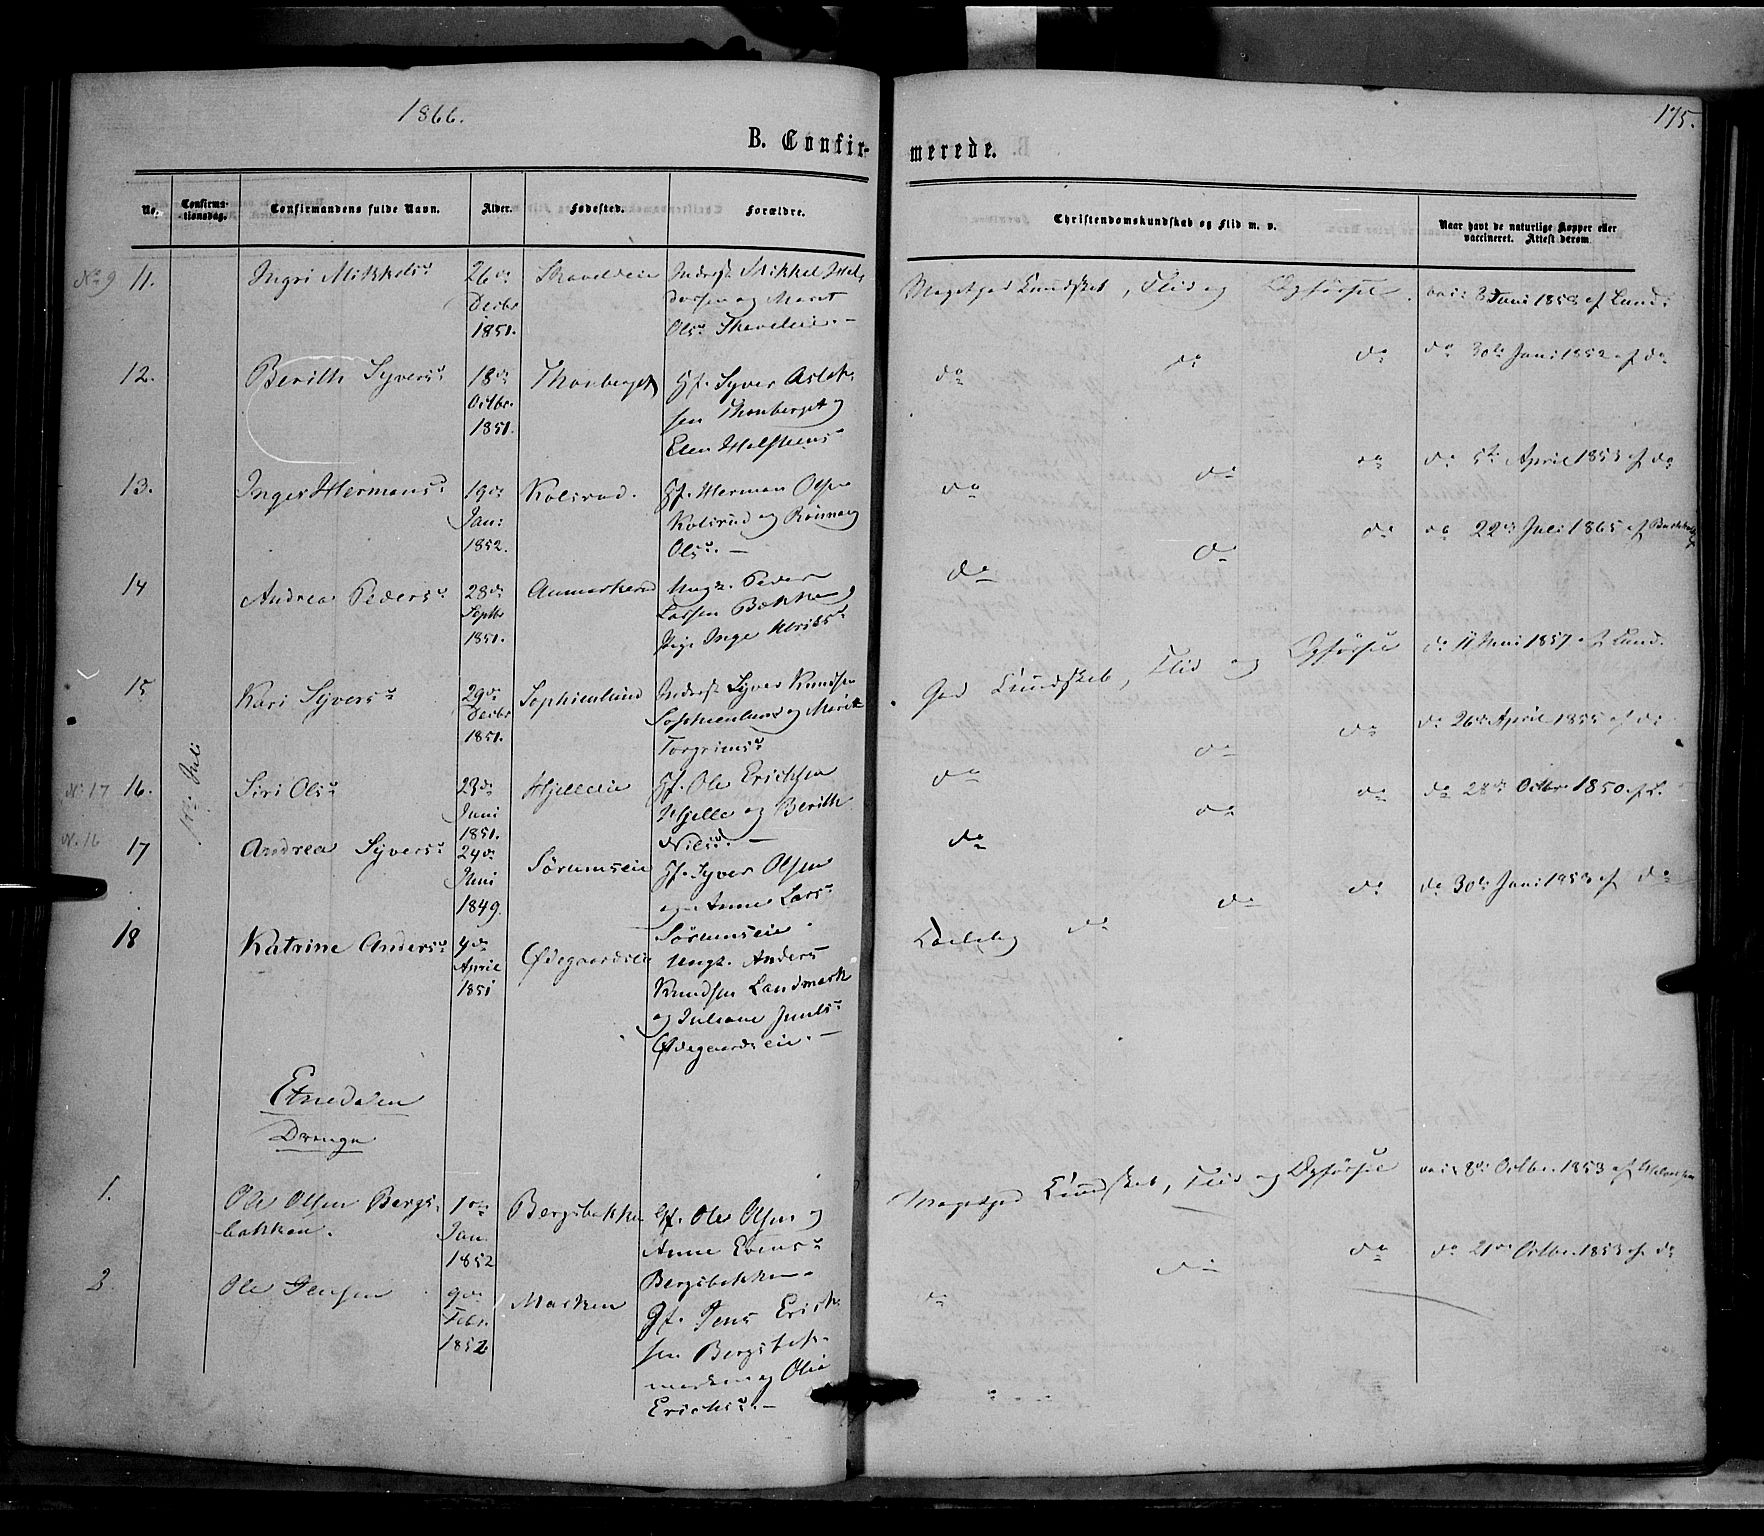 1866.
175.
B. Confir-
merede.
No.
Confirma-
tionsdag.
Confirmandens fulde Navn.
Alder.
Fødested.
Forældre.
Christendomskundskab og Flid m. v.
Naar havt de naturlige Kopper eller
vaccineret. Attest derom.
No 9 11. Ingri Mikkelsd. 26de Decbr 1851. Inderst Mikkel
og Marit
Olsd.
Megetgod Kundskab, Flid og Opførsel. vac: Juni 1853 af Lund:
12. Berith Syversd. 18de Octbr. 1851. Thonberget Gf. Syver Aslak-
sen Thonberget og
Elen
do do do do 30te Juni 1852 af do
13. Inger Hermansd. 19de Jan: 1852. Kolsrud. Gf. Herman Olsen
Kolsrud og Rønnaug
Olsd. —
do do do do 5te April 1853 af do
14 Andrea Pedersd. 28de Septbr 1851. Ungk. Peder
Larsen Bække og
Pige Inge
do do do do 22de Juli 1865 af
15 Kari Syversd. 29de Decbr 1851. Sophienlund Inderst Syver Knudsen
Sophienlund og Marit
Torgrimsd.
God Kundskab, Flid og Opførsel do 11 Juni 1857 af Lund.
Juli
N. 17 16. Siri Olsd. 23de Juni 1851. Hjelleeie Gf. Ole Erichsen
Hjelle og Berith
Nilsd. —
do do do do 26de April 1855 af do
N. 16 17 Andrea Syversd. 24de Juni 1849. Sørumseie Gf. Syver Olsen
og Anne Larsd.
Sørumseie
do do do do 28de Octbr 1850 af L.
18 Katrine Andersd. 4de April 1851 Ødegaardseie Ungk. Anders
Knudsen Landmark
og Juliane
Ødegaardseie. —
do do do do 30te Juni 1853 af do
Etnedalen
Drenge
1. Ole Olsen Bergs-
bakken. 1ste Jan. 1852 Bergsbakken Gf. Ole Olsen og
Anne Evensd.
Bergsbakken
Megetgod Kundskab, Flid og Opførsel vac: 8de Octbr. 1853 af
2. Ole Jensen 9de Febr. 1852 Marken Gf. Jens Erich-
sen Bergsbak-
marken og Olia
Erichsd. —
do do do do 21de Octbr. 1853 af do